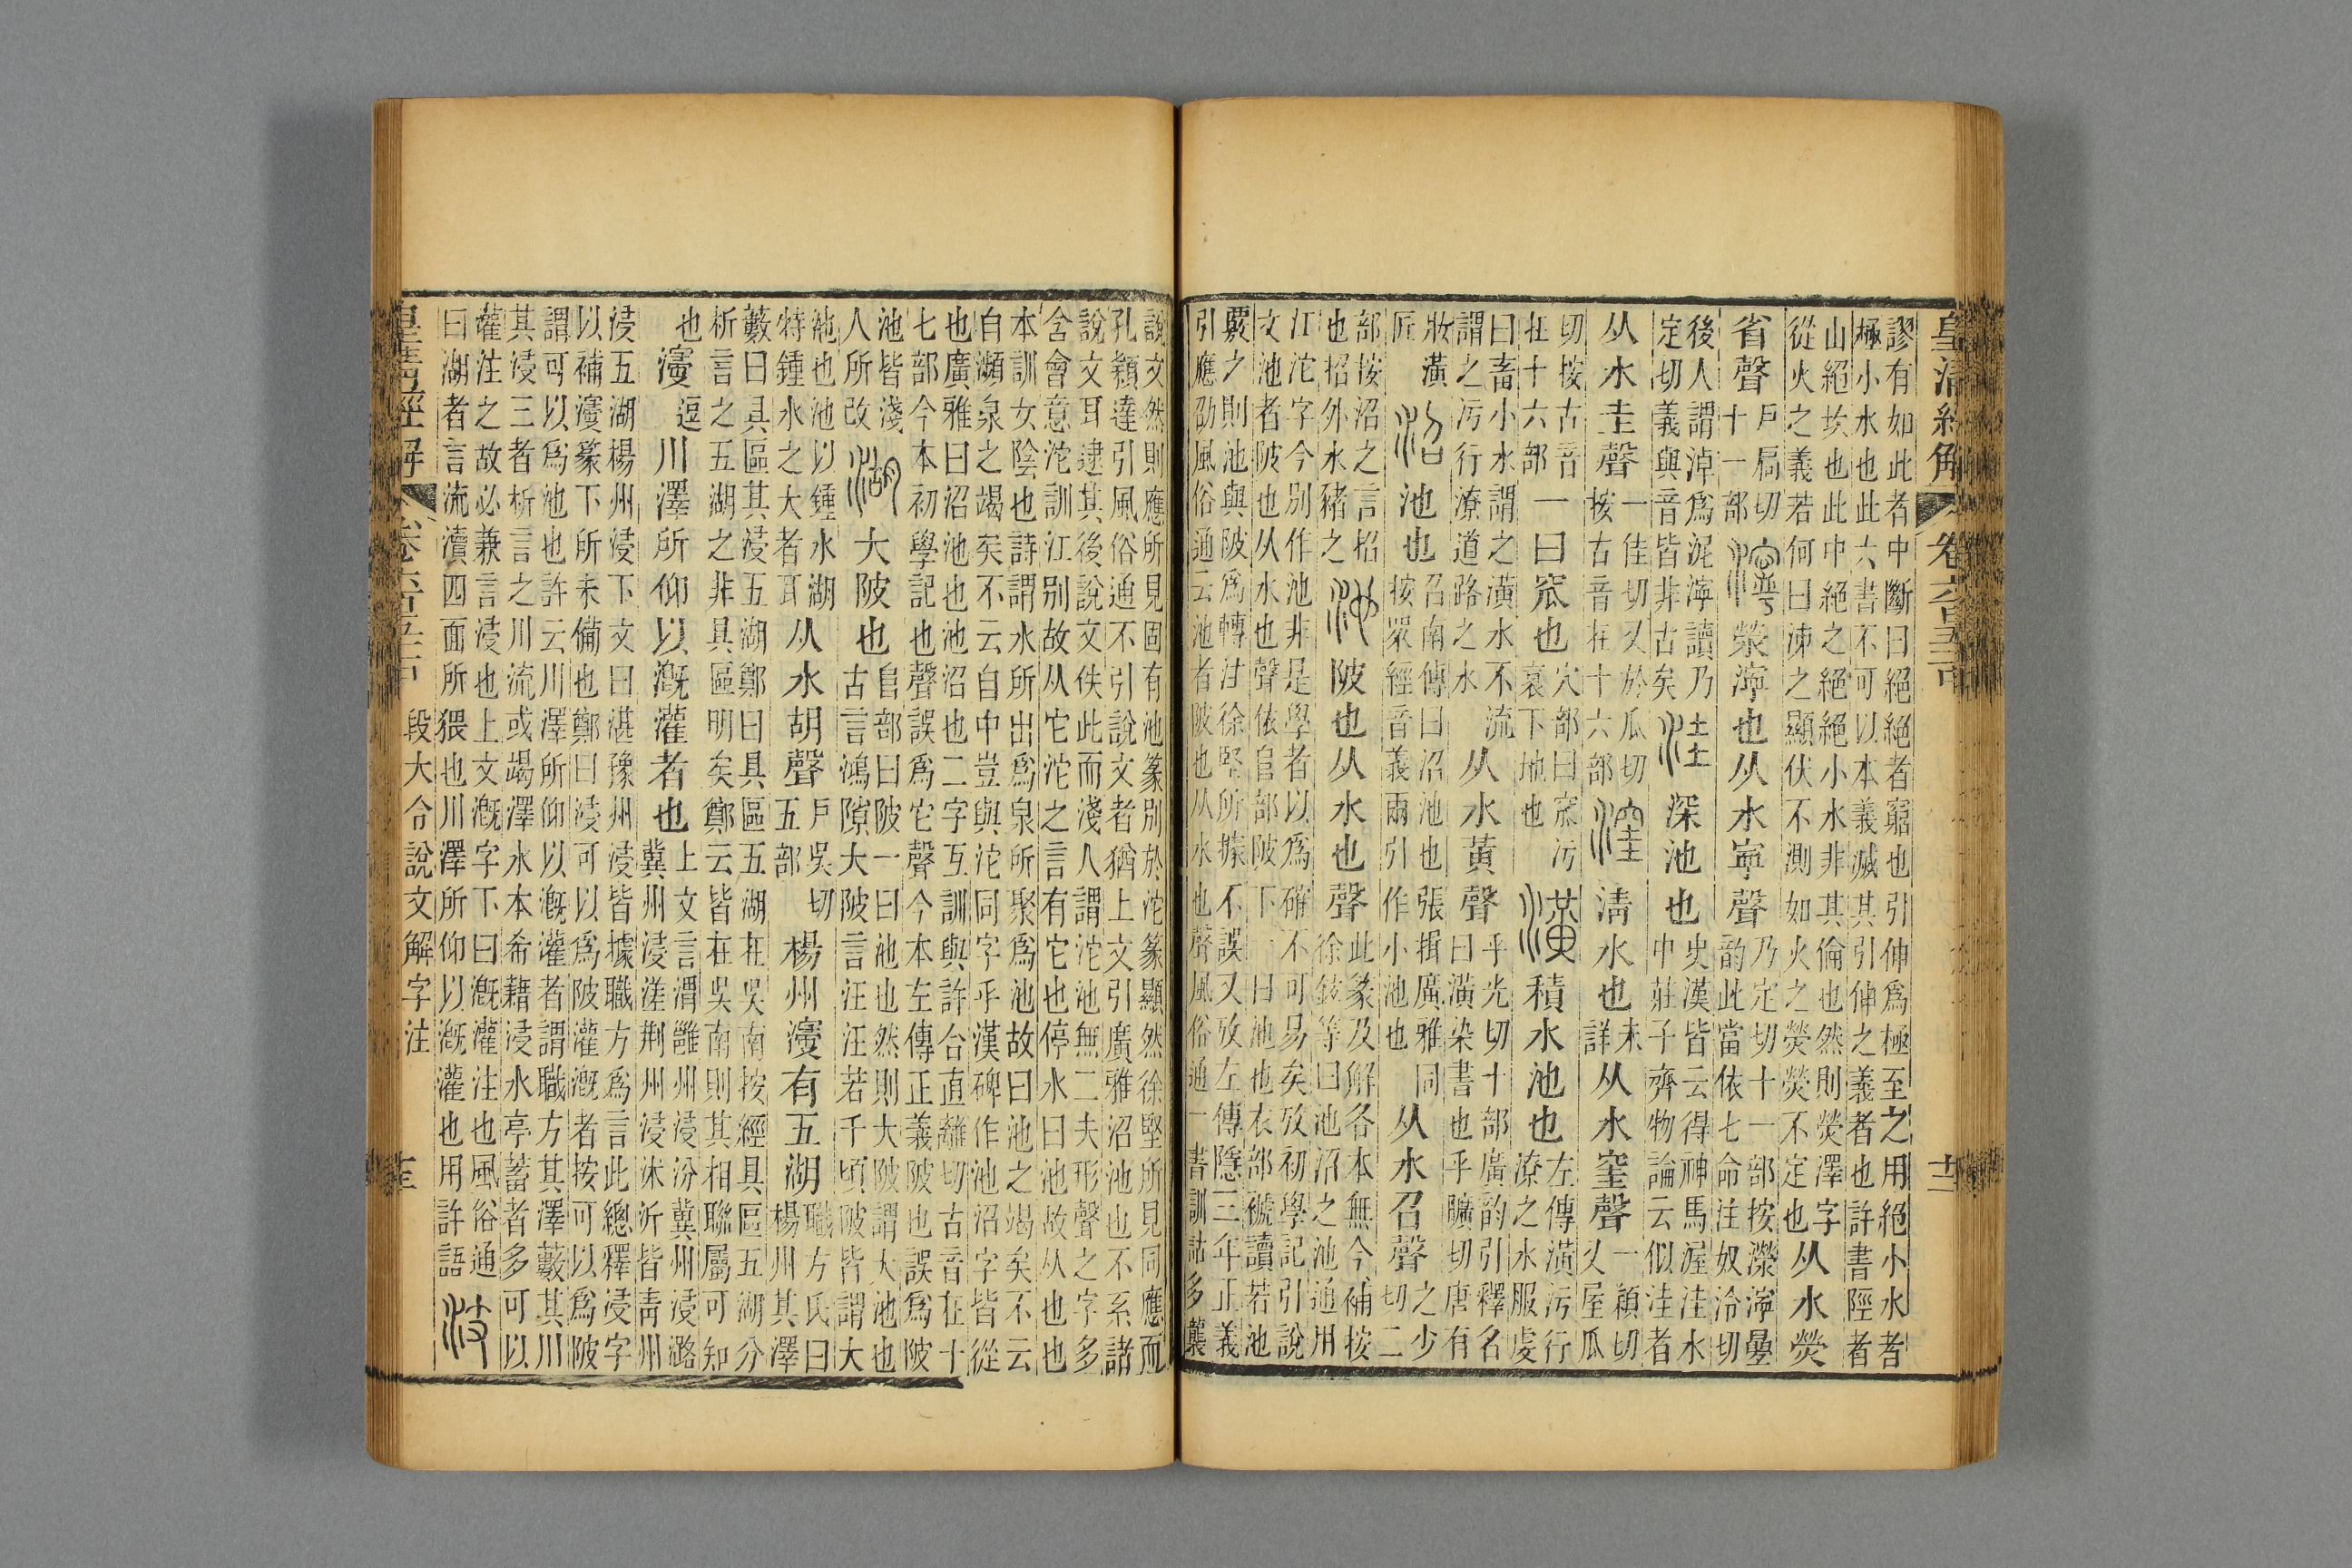 謬有如此者中斷曰絕絕者窮也引伸爲極至之用絕小水者
極小水也此六書不可以本義滅其引伸之義者也許書陘者
山絕坎也此中絕之絕絕小水非其倫也然則熒澤字
從火之義若何曰泲之顯伏不測如火之熒熒不定也从水熒
省聲戶扃切十一部濘滎濘也从水寧聲乃定切十一部按濼濘疊韵此當依七命注奴泠切
後人謂淖爲泥濘讀乃定切義與音皆非古矣洼深池也史漢皆云得神馬渥洼水中莊子齊物論云似洼者
从水圭聲一佳切又於瓜切按古音在十六部漥清水也未詳从水窐聲一穎切又屋瓜
切按古音在十六部一曰窊也穴部曰窊污衺下地也潢積水池也左傳潢污行潦之水服虔
曰畜小水謂之潢水不流謂之污行潦道路之水从水黃聲乎光切十部廣韵引釋名曰潢染書也乎曠切唐有
妝潢匠沼池也召南傳曰沼池也張揖廣雅同按眾經音義兩引作小池也从水召聲之少切二
部按沼之言招也招外水豬之池陂也从水也聲此篆及解各本無今補按徐鉉等曰池沼之池通用
江沱字今別作池非是學者以爲確不可易矣攷初學記引說
文池者陂也从水也聲依𨸏部陂下一曰池也衣部褫讀若池
覈之則池與陂爲轉注徐堅所據不誤又攷左傳隱三年正義
引應劭風俗通云池者陂也从水也聲風俗通一書訓詁多襲
說文然則應所見固有池篆別於沱篆顯然徐堅所見同應而
孔穎達引風俗通不引說文者猶上文引廣雅沼池也不系諸
說文耳逮其後說文佚此而淺人謂沱池無二夫形聲之字多
含會意沱訓江別故从它沱之言有它也停水曰池故从也也
本訓女陰也詩謂水所出爲泉所聚爲池故曰池之竭矣不云
自瀕泉之竭矣不云自中豈與沱同字乎漢碑作池沼字皆從
也廣雅曰沼池也池沼也二字互訓與許合直離切古音在十
七部今本初學記也聲誤爲它聲今本左傳正義陂也誤爲陂
池皆淺人所改湖大陂也𨸏部曰陂一曰池也然則大陂謂大池也古言鴻隙大陂言汪汪若千頃陂皆謂大
池也池以鍾水湖特鍾水之大者耳从水胡聲戶吳切五部楊州濅有五湖職方氏曰楊州其澤
藪曰具區其浸五湖鄭曰具區五湖在吳南按經具區五湖分
析言之五湖之非具區明矣鄭云皆在吳南則其相聯屬可知
也濅逗川澤所仰以溉灌者也上文言渭雝州浸汾冀州浸潞冀州浸溠荆州浸沭沂皆靑州
浸五湖楊州浸下文曰湛豫州浸皆據職方爲言此總釋浸字
以補濅篆下所未備也鄭曰浸可以爲陂灌溉者按可以爲陂
謂可以爲池也許云川澤所仰以溉灌者謂職方其澤藪其川
其浸三者析言之川流或竭澤水本希藉浸水亭蓄者多可以
灌注之故必兼言浸也上文溉字下曰溉灌注也風俗通
曰湖者言流瀆四面所猥也川澤所仰以溉灌也用許語汥
段大令說文解字注